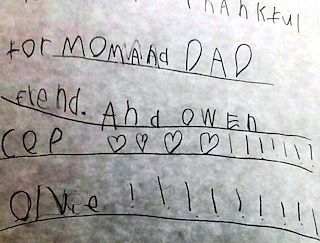 Thankful
for MOMAnd DAD
flend. And OWEN
CEP ♡ ♡ ♡ ♡ ! ! ! ! ! !
Olvie ! ! ! ! ! ! ! ! !